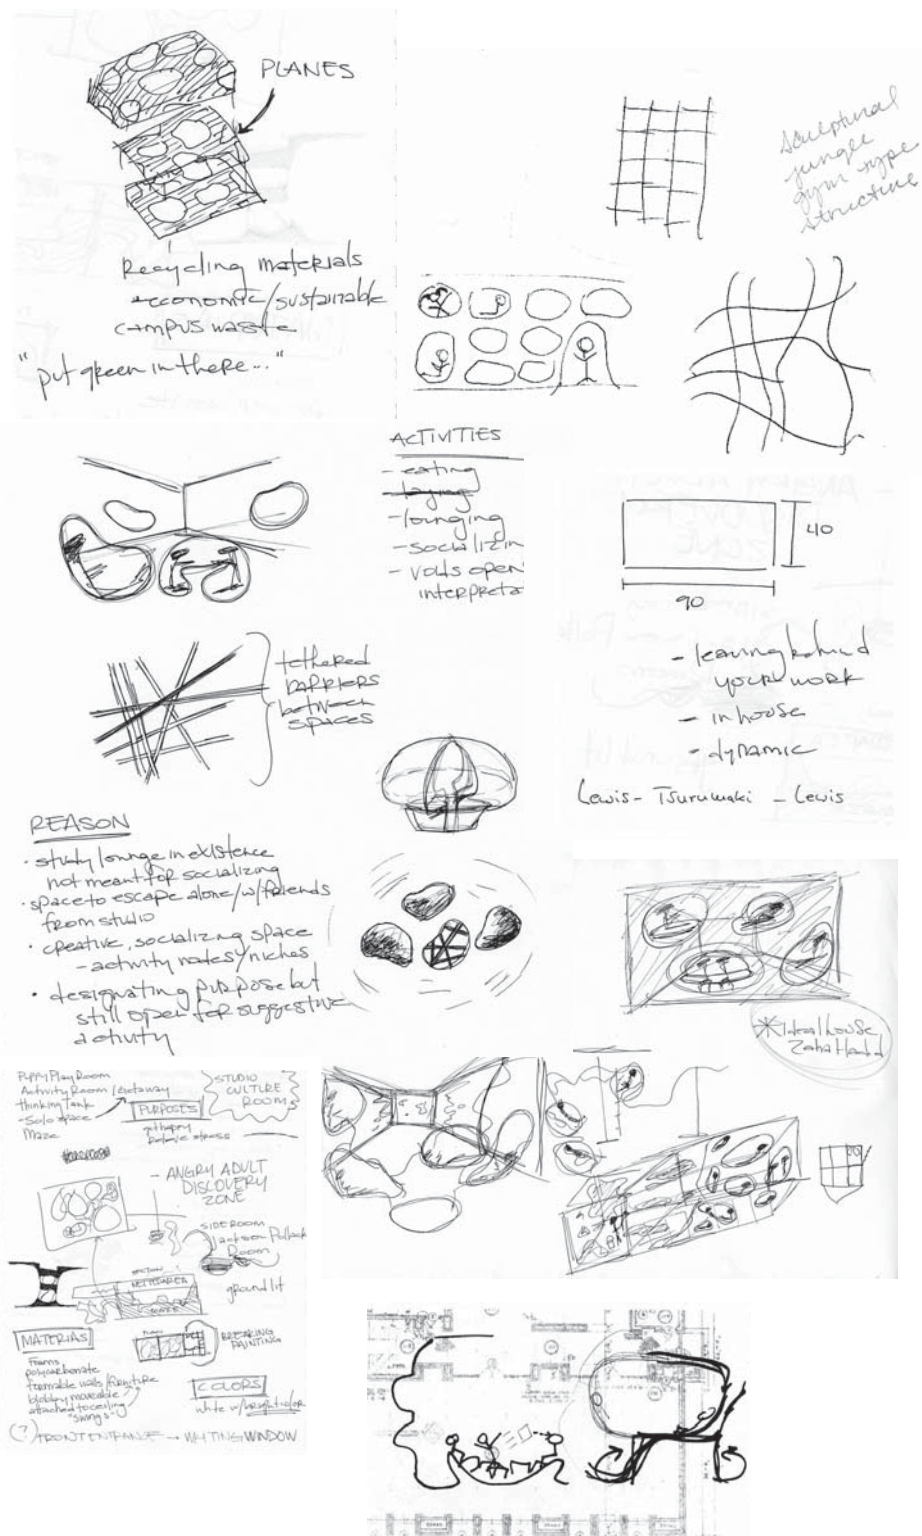 PLANES
Recycling materials
- economic/sustainable
campus waste
"put green in there..."
sculptural
jungle
gym type
structure
ACTIVITIES
- eating
- laying
- lounging
- socializin
- voids open
interpreta
40
90
- leaving behind
your work
- in house
- dynamic
Lewis - Tsurumaki - Lewis
tethered
barriers
between
spaces
REASON
• study lounge in existence
not meant for socializing
• space to escape alone/w/friends
from studio
• creative, socializing space
- activity nodes/niches
• designating purpose but
still open for suggestive
activity
* Ideal house
Zaha Hadid
Puppy Play Room
Activity Room / Getaway
Thinking Tank
- Solo space
Maze
STUDIO
CULTURE
ROOM
PURPOSES
get happy
relieve stress
- ANGRY ADULT
DISCOVERY
ZONE
SIDE ROOM
Jackson Pollack
Room
ground lit
SECTION
BREAKING
PAINTING
MATERIALS
Foams
polycarbonate
formable walls/furniture
blobby moveable
attached to ceiling
"swings"
COLORS
white w/ bright color
(?) FRONT ENTRANCE → WAITING WINDOW